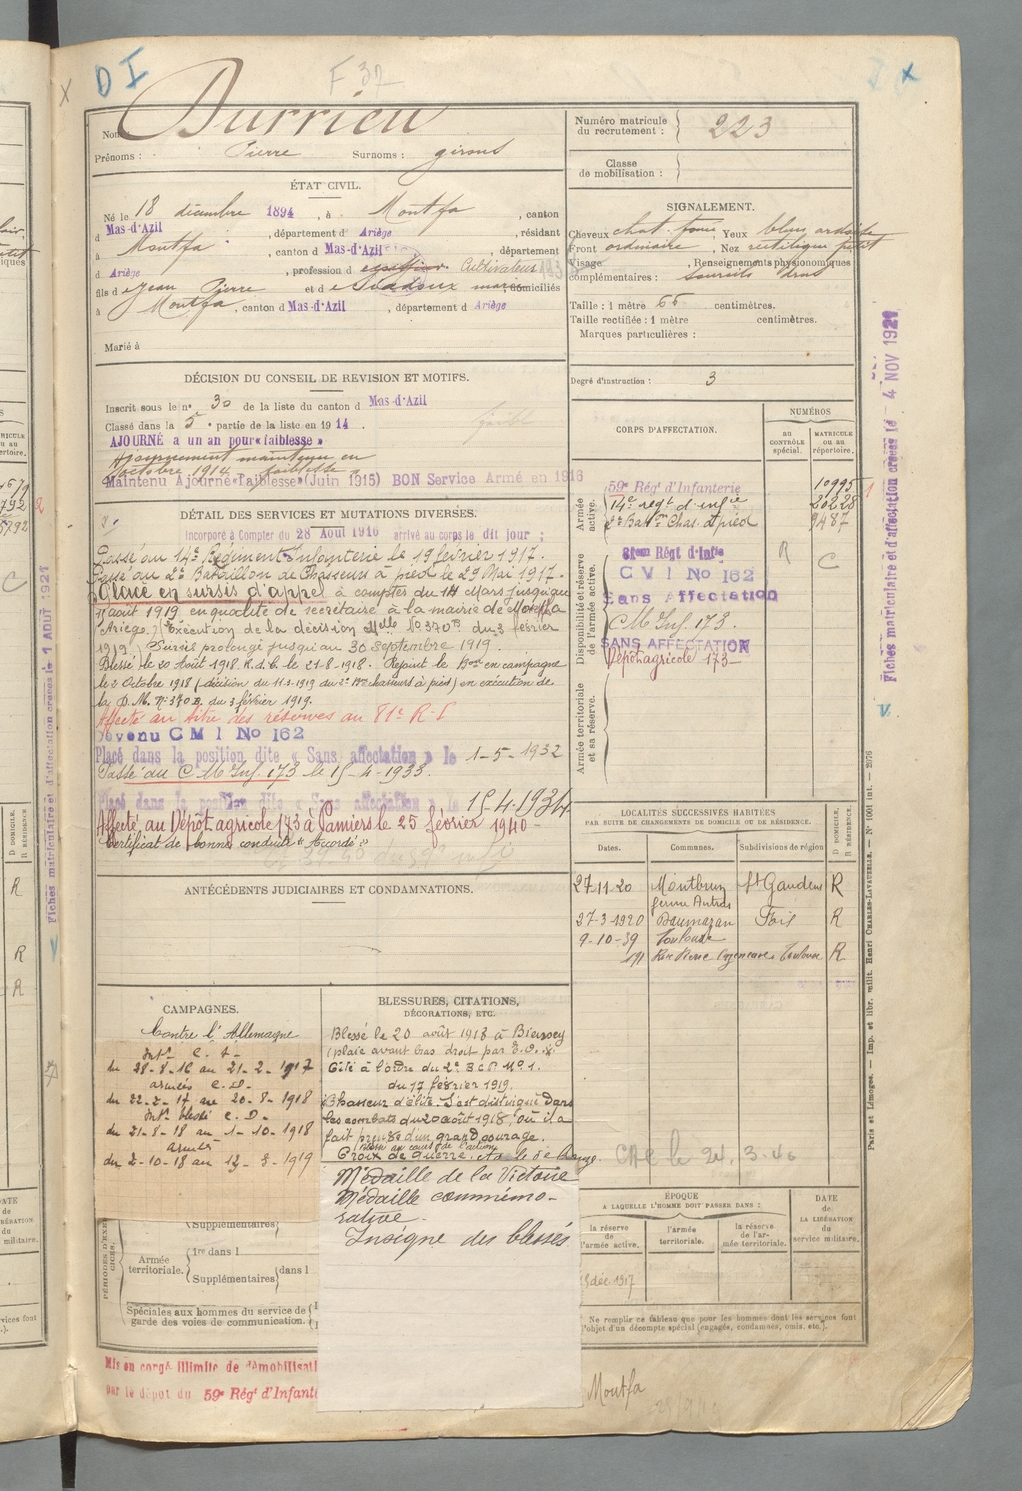 D I
F 32
Nom
Durrieu
Prénoms : Pierre Surnoms : girons
Numéro matricule du recrutement : 223
Classe de mobilisation :
ÉTAT CIVIL.
Né le 18 décembre 1894, à Montfa, canton
d Mas-d'Azil, département d Ariège, résidant
à Montfa, canton d Mas-d'Azil, département
d Ariège, profession d Cultivateur
fils d e Jean Pierre et d e domiciliés
à Montfa, canton d Mas-d'Azil, département d Ariège
Marié à
SIGNALEMENT.
Cheveux chat. foncé, Yeux bleu ardoise
Front ordinaire, Nez rectiligne petit
Visage, Renseignements physionomiques
complémentaires : sourcils drus
Taille : 1 mètre 66 centimètres.
Taille rectifiée : 1 mètre centimètres.
Marques particulières :
Degré d'instruction : 3
DÉCISION DU CONSEIL DE REVISION ET MOTIFS.
Inscrit sous le n° 30 de la liste du canton d Mas-d'Azil
Classé dans la 5e partie de la liste en 1914.
AJOURNÉ a un an pour « faiblesse »
Ajournement maintenu en
octobre 1914 « faiblesse »
Maintenu Ajourné « Faiblesse » (Juin 1915) BON Service Armé en 1916
CORPS D'AFFECTATION.
NUMÉROS
AU CONTRÔLE spécial.
MATRICULE OU AU répertoire.
Armée active.
59e Régt d'Infanterie 10995
14e regt d'infie 20228
2e Batton Chas. à pied 9487
Disponibilité et réserve de l'armée active.
81em Régt d'Infie
C M I No 162
Sans Affectation
C M Inf. 173.
SANS AFFECTATION
Dépôt agricole 173
R
C
Armée territoriale et sa réserve.
DÉTAIL DES SERVICES ET MUTATIONS DIVERSES.
Incorporé à Compter du 28 Aout 1916 arrivé au corps le dit jour ;
Passé au 14e Régiment Infanterie le 19 février 1917.
Passé au 2e Bataillon de Chasseurs à pied le 29 Mai 1917.
Placé en sursis d'appel à compter du 14 Mars jusqu'au
août 1919 en qualité de secrétaire à la mairie de Montfa
(Ariège) (Exécution de la décision Melle No 370 B du 3 février
1919) Sursis prolongé jusqu'au 30 septembre 1919.
Blessé le 20 Août 1918. R.d.C. le 21-8-1918. Rejoint le Bon en campagne
le 2 Octobre 1918 (décision du 11-3-1919 du 2e Bon chasseurs à pied) en exécution de
la D. M. n° 370 B. du 3 février 1919.
Affecté au titre des réserves au 81e R. I
Devenu C M I No 162
Placé dans la position dite « Sans affectation » le 1-5-1932
Passé au C M Inf. 173 le 15-4-1933.
Placé dans la position dite « Sans affectation » le 15.4.1934
Affecté au Dépôt agricole 173 à Pamiers le 25 février 1940 -
Certificat de bonne conduite « Accordé »
ANTÉCÉDENTS JUDICIAIRES ET CONDAMNATIONS.
LOCALITÉS SUCCESSIVES HABITÉES
PAR SUITE DE CHANGEMENTS DE DOMICILE OU DE RÉSIDENCE.
Dates. Communes. Subdivisions de région D DOMICILE. R RÉSIDENCE.
27.11.20 Montbrun St Gaudens R
ferme Autras
27-3-1920 Daumazan Foix R
9-10-39 Toulouse
Toulouse R
CAMPAGNES.
Contre l'Allemagne
Intr C. S.
du 28-8-16 au 21-2-1917
armées C.D.
du 22-2-17 au 20-8-1918
Intr blessé C. D.
du 21-8-18 au 1-10-1918
armées
du 2-10-18 au 13-3-1919
BLESSURES, CITATIONS, DÉCORATIONS, ETC.
Blessé le 20 août 1918 à Bieuxy
(plaie avant bras droit par E.O.)
Cité à l'ordre du 2e B.C.P. No 1.
du 17 février 1919.
« Chasseur d'élite. S'est distingué dans
les combats du 20 août 1918, où il a
fait preuve d'un grand courage.
Blessé au cours de l'action
Croix de Guerre.
Médaille de la Victoire
Médaille commémo-
rative.
Insigne des blessés
CRC le 24.3.40
PÉRIODES D'EXERCICES.
Supplémentaires
Armée territoriale. 1re dans l
Supplémentaires dans l
Spéciales aux hommes du service de garde des voies de communication.
ÉPOQUE
A LAQUELLE L'HOMME DOIT PASSER DANS :
la réserve de l'armée active.
l'armée territoriale.
la réserve de l'armée territoriale.
DATE de LA LIBÉRATION du service militaire.
déc. 1917
Ne remplir ce tableau que pour les hommes dont les services font l'objet d'un décompte spécial (engagés, condamnés, omis, etc.).
Mis en congé illimité de démobilisati
par le dépôt du 59e Régt d'Infant
Montfa
Fiches matriculaire et d'affectation créées le 4 NOV 1921
Fiches matriculaire et d'affectation créées le 1 AOUT 1921
Paris et Limoges. — Imp. et libr. milit. Henri CHARLES-LAVAUZELLE. — N° 1001 int. — 2076